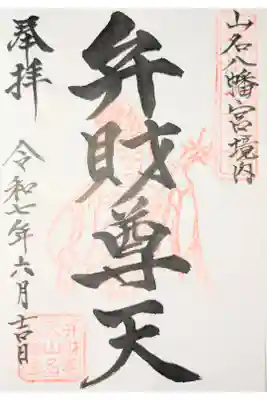 山名八幡宮境内
弁財尊天
奉拝
令和七年六月吉日